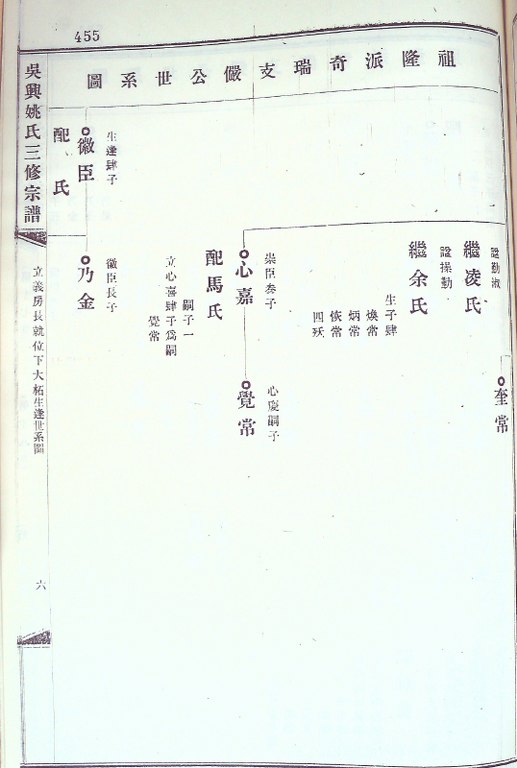 455
祖隆派奇瑞支儼公世系圖
諡勤淑
繼凌氏
奎常
諡操勤
繼余氏
生子肆
煥常
炳常
恢常
四殀
崇臣叁子
心嘉
配馬氏
嗣子一
立心喜肆子為嗣
覺常
心慶嗣子
覺常
生逢肆子
徽臣
配氏
徽臣長子
乃金
吳興姚氏三修宗譜
立義房長就位下大柘生逢世系圖
六